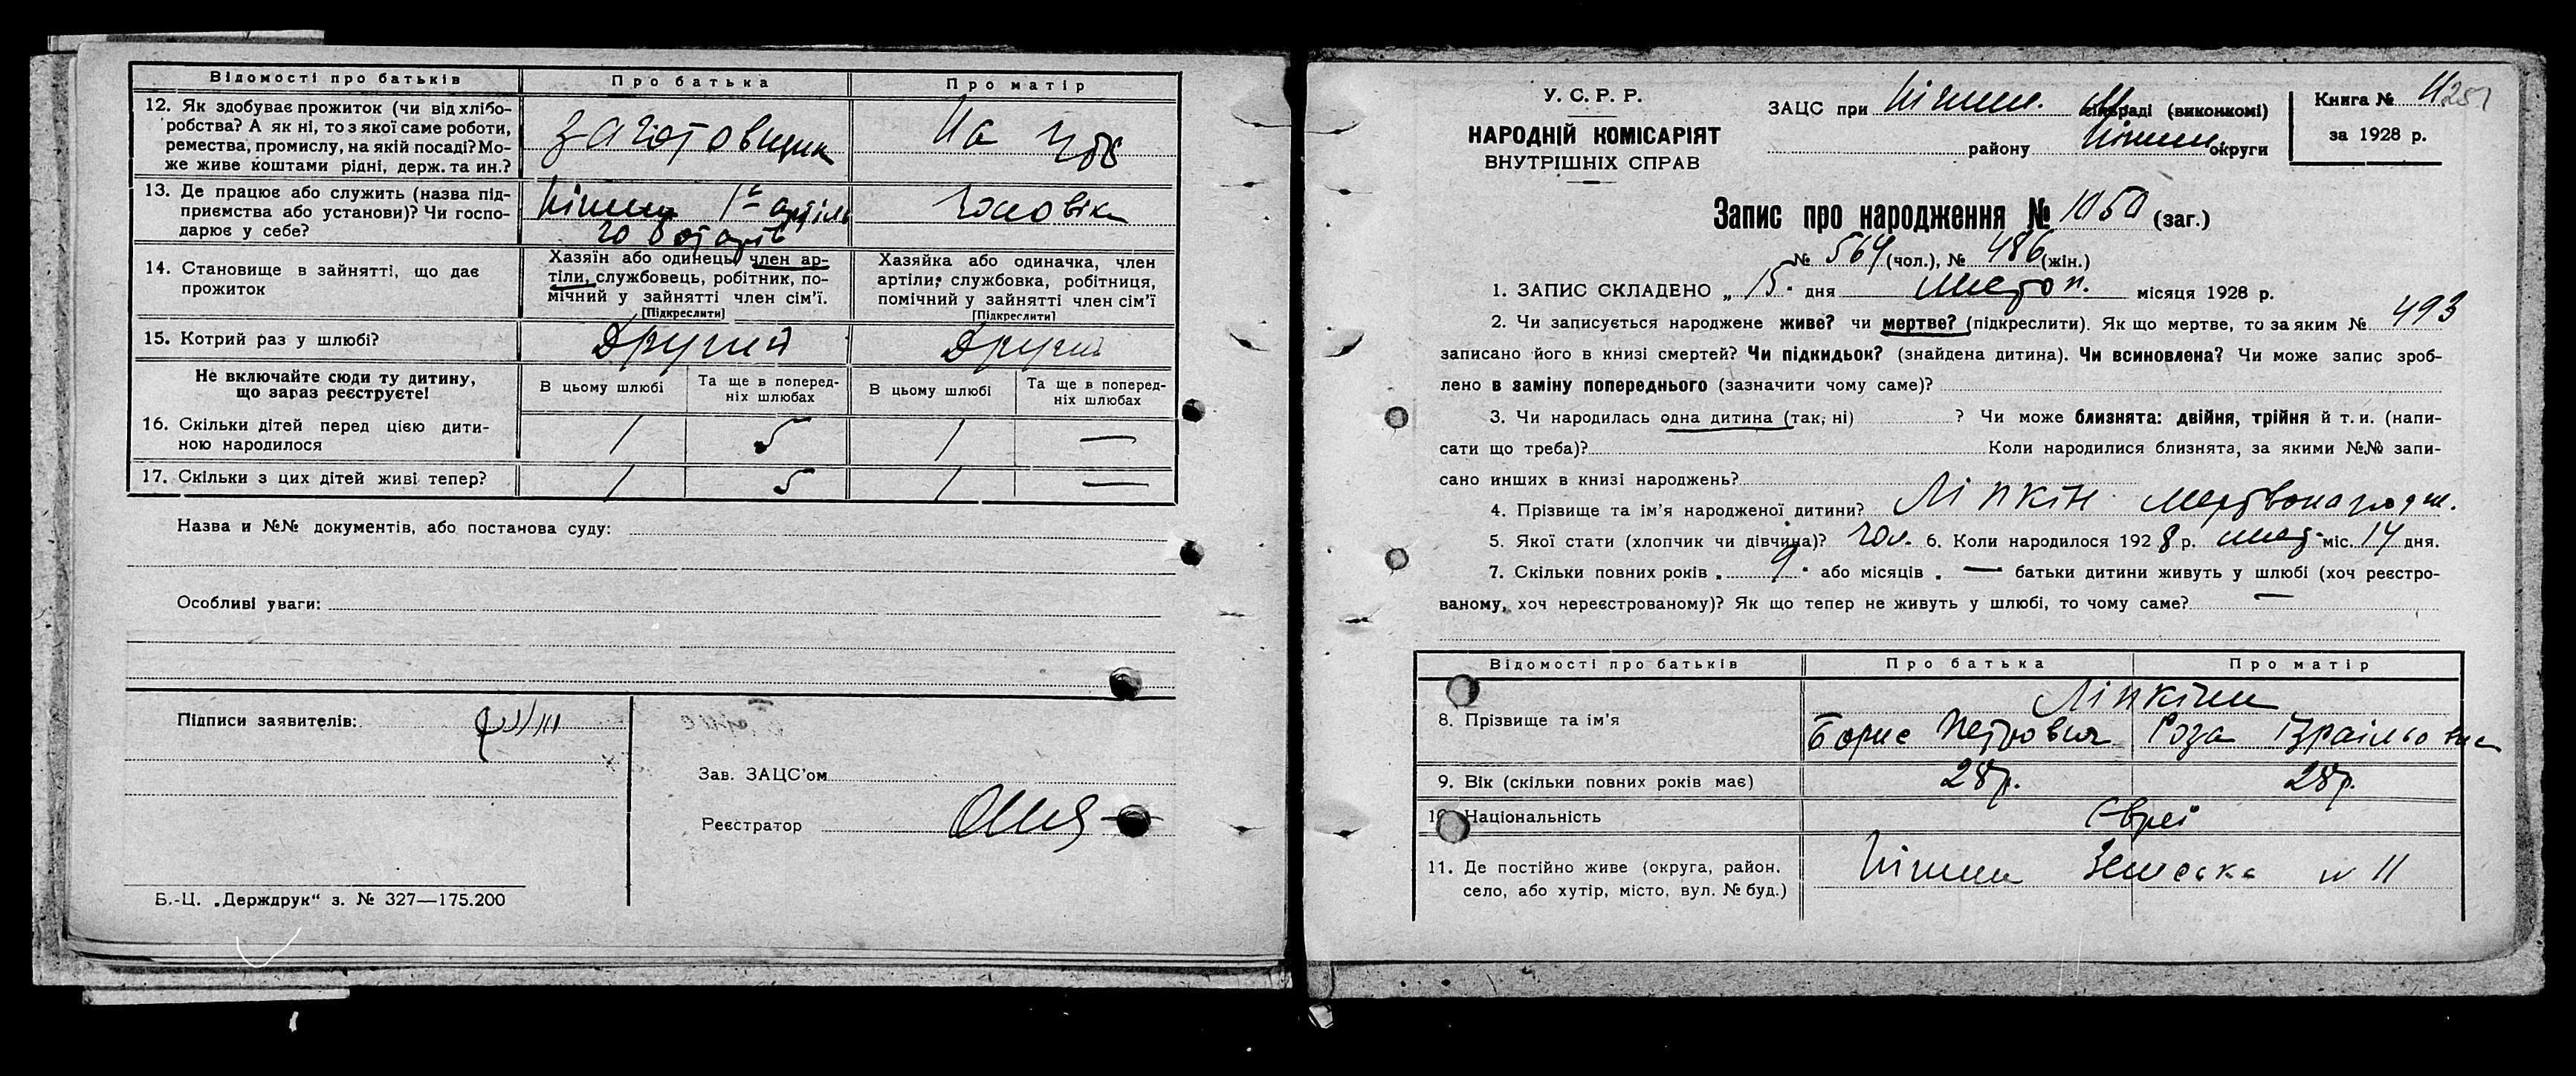 Відомості про батьків Про батька Про матір
12. Як здобуває прожиток (чи від хлібо-
робства? А як ні, то з якої саме роботи,
ремества, промислу, на якій посаді? Мо-
же живе коштами рідні, держ. та ин.?
заготовщик На
13. Де працює або служить (назва під-
приємства або установи)? Чи госпо-
дарює у себе?
Ніжин 1ᵃ артіль чоловіка
чоботарів
14. Становище в зайнятті, що дає
прожиток
Хазяїн або одинець, член ар-
тіли, службовець, робітник, по-
мічний у зайнятті член сім’ї.
[Підкреслити]
Хазяйка або одиначка, член
артіли, службовка, робітниця,
помічний у зайнятті член сім’ї
[Підкреслити]
15. Котрий раз у шлюбі? Другий Другий
Не включайте сюди ту дитину,
що зараз реєструєте!
В цьому шлюбі Та ще в поперед-
ніх шлюбах В цьому шлюбі Та ще в поперед-
ніх шлюбах
16. Скільки дітей перед цією дити-
ною народилося 1 5 1 —
17. Скільки з цих дітей живі тепер? 1 5 1 —
Назва и №№ документів, або постанова суду:
Особливі уваги:
Підписи заявителів:
Зав. ЗАЦС’ом
Реєстратор
Б.-Ц. „Держдрук“ з. № 327—175.200
У. С. Р. Р.
НАРОДНІЙ КОМІСАРІЯТ
ВНУТРІШНІХ СПРАВ
ЗАЦС при Ніжин. М. сільраді (виконкомі)
району Ніжин. округи
Книга № 11 251
за 1928 р.
Запис про народження № 1050 (заг.)
№ 564 (чол.), № 486 (жін.)
1. ЗАПИС СКЛАДЕНО „ 15 " дня Листоп. місяця 1928 р.
2. Чи записується народжене живе? чи мертве? (підкреслити). Як що мертве, то за яким № 493
записано його в книзі смертей? Чи підкидьок? (знайдена дитина). Чи всиновлена? Чи може запис зроб-
лено в заміну попереднього (зазначити чому саме)?
3. Чи народилась одна дитина (так, ні) ? Чи може близнята: двійня, трійня й т. и. (напи-
сати що треба)? Коли народилися близнята, за якими №№ запи-
сано инших в книзі народжень?
4. Прізвище та ім’я народженої дитини? Ліпкін мертвонародж.
5. Якої стати (хлопчик чи дівчина)? чол. 6. Коли народилося 1928 р. лист. міс. 14 дня.
7. Скільки повних років „ 9 " або місяців „ — батьки дитини живуть у шлюбі (хоч реєстро-
ваному, хоч нереєстрованому)? Як що тепер не живуть у шлюбі, то чому саме? —
Відомості про батьків Про батька Про матір
8. Прізвище та ім’я
Ліпкіни
Борис Петрович Роза Ізраільовна
9. Вік (скільки повних років має) 28 р. 28 р.
10. Національність Євреї
11. Де постійно живе (округа, район,
село, або хутір, місто, вул. № буд.)
Ніжин Земська № 11